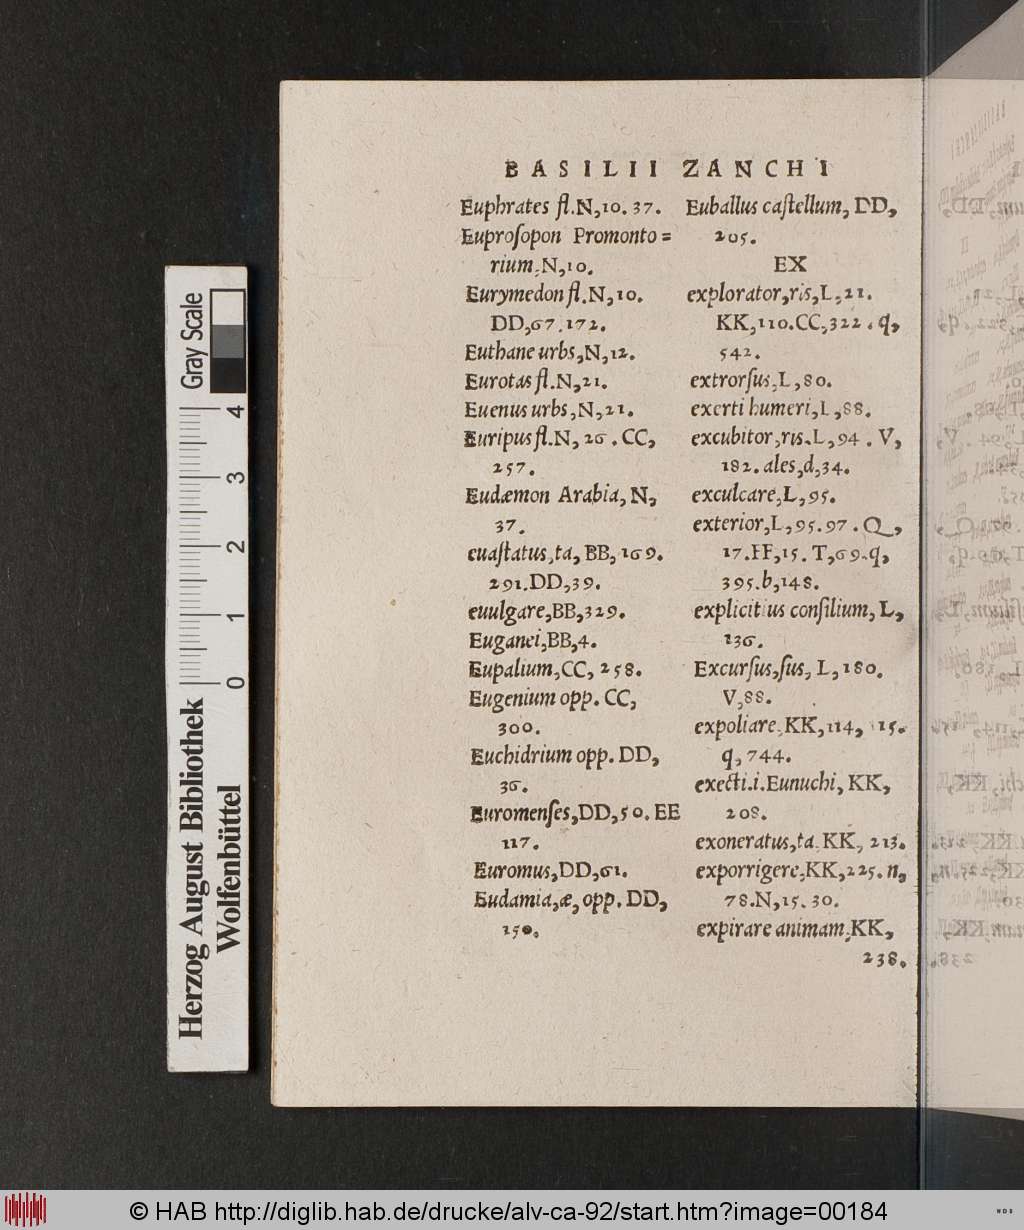 BASILII ZANCHI
Euphrates fl.N,10.37.
Euproſopon Promonto=
rium,N,10.
Eurymedon fl.N,10.
DD,67.172.
Euthane urbs,N,12.
Eurotas fl.N,21.
Euenus urbs,N,21.
Euripus fl.N,26.CC,
257.
Eudæmon Arabia,N,
37.
euaſtatus,ta,BB,169.
291.DD,39.
euulgare,BB,329.
Euganei,BB,4.
Eupalium,CC,258.
Eugenium opp.CC,
300.
Euchidrium opp.DD,
36.
Euromenſes,DD,50.EE
117.
Euromus,DD,61.
Eudamia,æ,opp.DD,
150.
Euballus caſtellum,DD,
205.
EX
explorator,ris,L,21.
KK,110.CC,322.q,
542.
extrorſus,L,80.
exerti humeri,L,88.
excubitor,ris.L,94.V,
182.ales,d,34.
exculcare,L,95.
exterior,L,95.97.Q,
17.FF,15.T,69.q,
395.b,148.
explicitius conſilium,L,
136.
Excurſus,ſus,L,180.
V,88.
expoliare,KK,114, 15.
q,744.
execti.i.Eunuchi,KK,
208.
exoneratus,ta,KK,213.
exporrigere,KK,225.n,
78.N,15.30.
expirare animam,KK,
238.
Gray Scale
4
3
2
1
0
Herzog August Bibliothek
Wolfenbüttel
© HAB http://diglib.hab.de/drucke/alv-ca-92/start.htm?image=00184